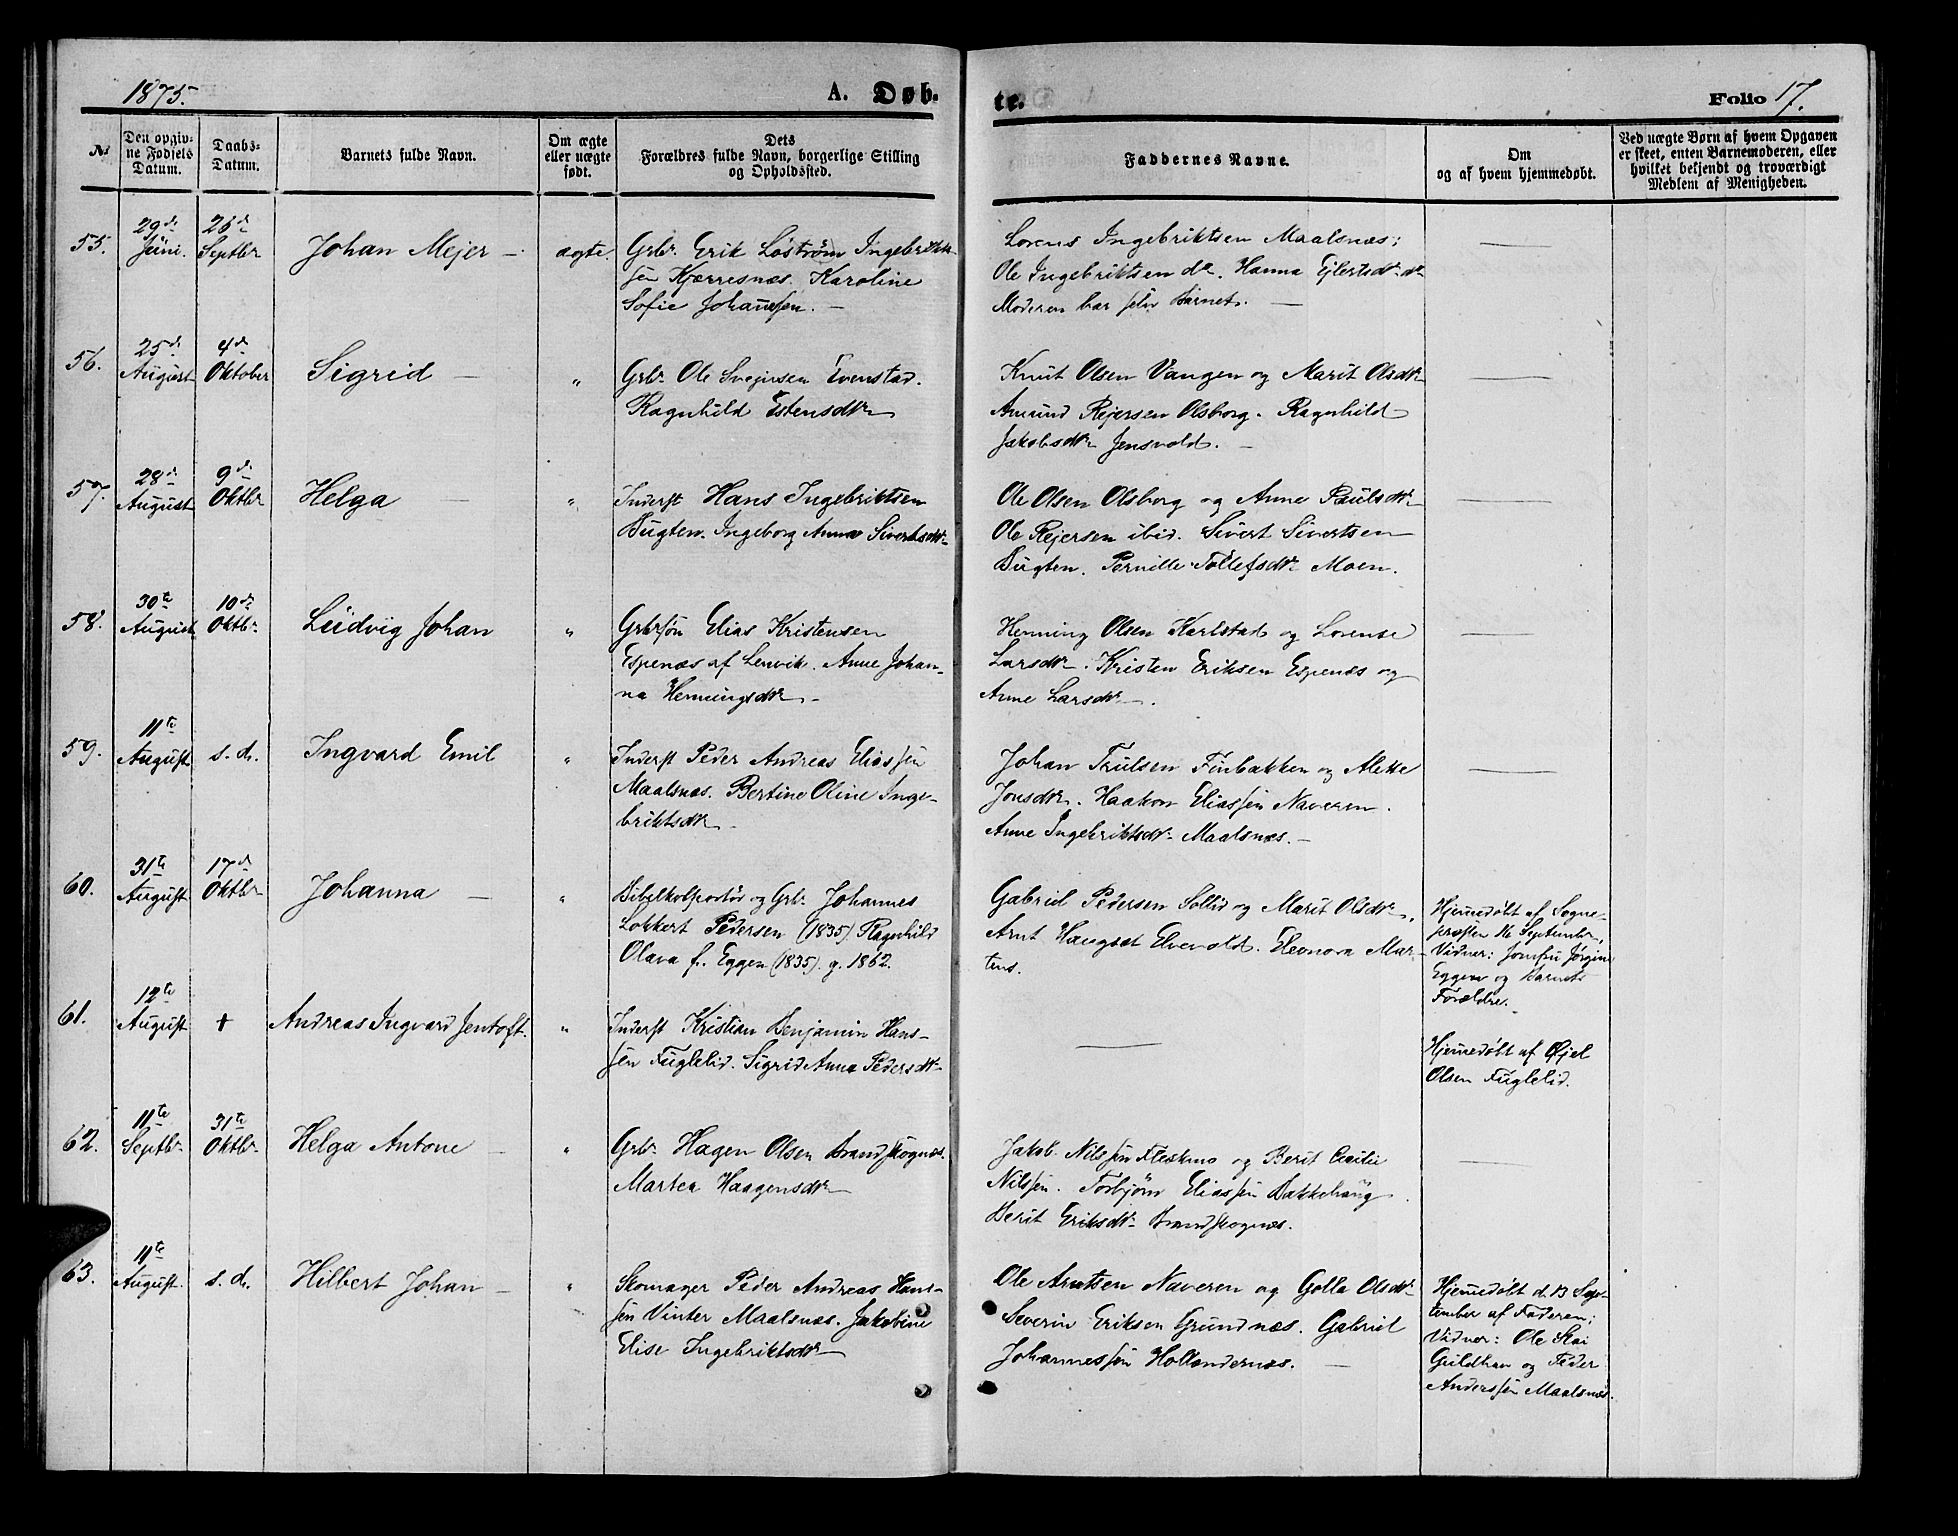 1875.
A. Døb-
te.
Folio 17.
No
Den opgiv-
ne Fødsels
Datum.
Daabs-
Datum.
Barnets fulde Navn.
Om ægte
eller uægte
født.
Dets
Forældres fulde Navn, borgerlige Stilling
og Opholdssted.
Faddernes Navne.
Om
og af hvem hjemmedøbt.
Ved uægte Børn af hvem Opgaven
er skeet, enten Barnemoderen, eller
hvilket bekjendt og troværdigt
Medlem af Menigheden.
55.
29de
Juni.
26de
Septbr
Johan Mejer —
ægte.
Grbr. Erik Loström Ingebrikt-
sen Kjærresnæs. Karoline
Sofie Johannesen. —
Lorens Ingebriktsen Maalsnæs;
Ole Ingebriktsen do. Hanna Ejlertsdtr. do
Moderen bar selv Barnet. —
56.
25de
August
4de
Oktober
Sigrid —
"
Grbr. Ole Svejnsen Evenstad.
Ragnhild Estensdtr
Knut Olsen Vangen og Marit Olsdtr
Amund Rejersen Olsborg. Ragnhild
Jakobsdtr Jensvold. —
57.
28de
August
9de
Oktbr
Helga —
"
Inderst Hans Ingebriktsen
Bugten. Ingeborg Anna Sivertsdtr.
Ole Olsen Olsborg og Anne Paulsdtr
Ole Rejersen ibid. Sivert Sivertsen
Bugten. Pernille Tollefsdtr. Moen.
58.
30te
August
10de
Oktbr.
Ludvig Johan
"
Grbrsøn Elias Kristensen
Espenæs af Lenvik. Anne Johan-
na Henningsdtr —
Henning Olsen Karlstad og Lorense
Larsdtr. Kristen Eriksen Espenæs og
Anne Larsdtr.
59.
11te
August
s. d.
Ingvard Emil
"
Inderst Peder Andreas Eliassen
Maalsnæs. Bertine Oline Inge-
briktsdtr —
Johan Trulsen Finbakken og Alette
Jonsdtr. Haakon Eliassen Naveren.
Anne Ingebriktsdtr. Maalsnæs. —
60.
31te
August
17de
Oktbr
Johanna —
"
Bibelkolportør og Grbr. Johannes
Lokkert Pedersen (1835). Ragnhild
Olava f. Eggen (1835). g. 1862.
Gabriel Pedersen Sollid og Marit Olsdtr.
Arnt Haugset Elvevold. Eleonora Mar-
tens.
Hjemmedøbt af Sogne-
præsten 16 September,
Vidner: Jomfru Jørgine
Eggen og Barnets
Forældre.
61.
12te
August
+
Andreas Ingvard Jentoft.
"
Inderst Kristian Benjamin Hans-
sen Fuglelid. Sigrid Anna Pedersdtr.
Hjemmedøbt af Ejel
Olsen Fuglelid.
62.
11te
Septbr.
31te
Oktbr.
Helga Antone —
"
Grbr. Hagen Olsen Brandskognæs.
Martea Haagensdtr
Jakob Nilssen Fleskmo og Berit Cecilie
Nilssen. Torbjørn Eliassen Bakkehaug.
Berit Eriksdtr. Brandskognæs.
63.
11te
August.
s. d.
Hilbert Johan —
"
Skomager Peder Andreas Hans-
sen Vinter Maalsnæs. Jakobine
Elise Ingebriktsdtr
Ole Arntsen Naveren og Golla Olsdtr.
Severin Eriksen Grundnæs. Gabriel
Johannessen Hollendernæs. —
Hjemmedøbt d. 13 Sep-
tember af Faderen;
Vidner: Ole Skai
Guldhav og Peder
Anderssen Maalsnæs.